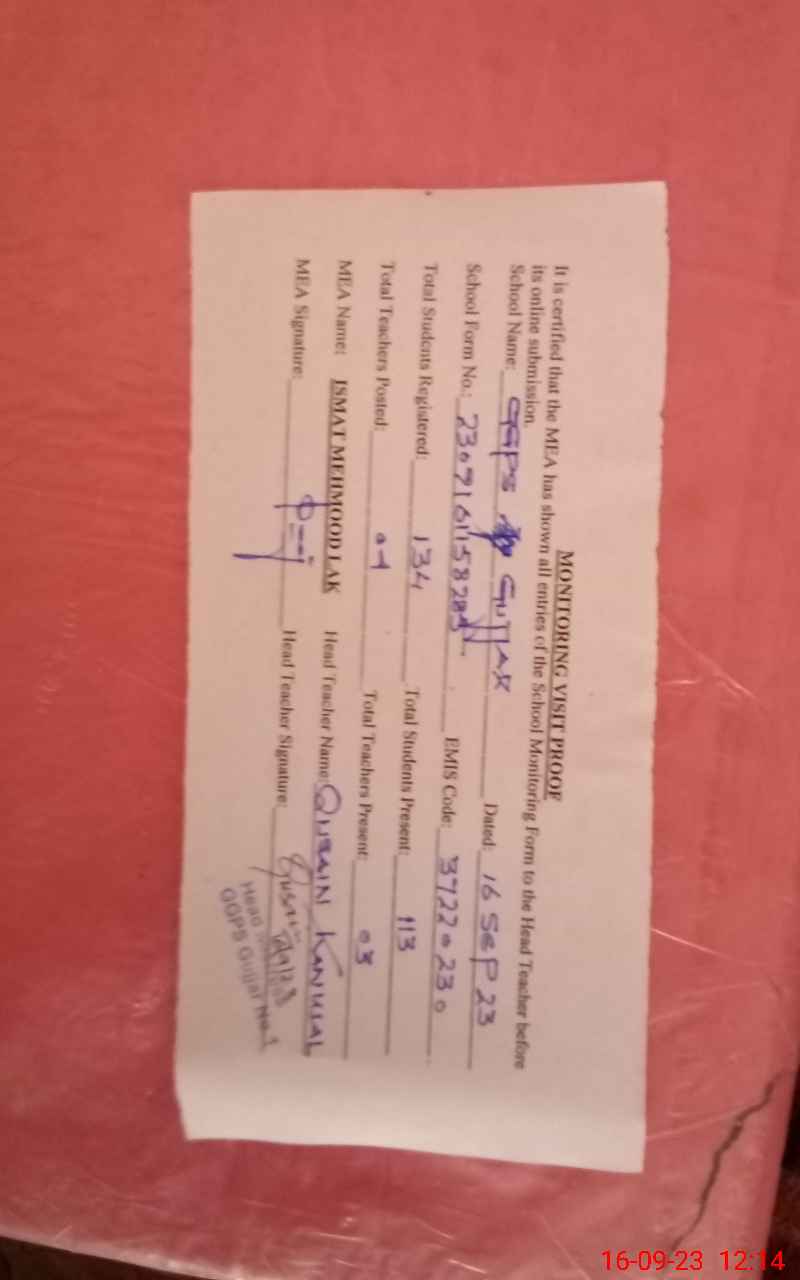 MONITORING VISIT PROOF
It is certified that the MEA has shown all entries of the School Monitoring Form to the Head Teacher before
its online submission.
School Name: GGPS Gujjar Dated: 16 Sep 23
School Form No.: EMIS Code: 37220230
Total Students Registered: 134 Total Students Present: 113
Total Teachers Posted: 04 Total Teachers Present: 03
MEA Name: ISMAT MEHMOOD LAK Head Teacher Name:
MEA Signature: Head Teacher Signature:
Head
GGPS Gujjar No.1
16-09-23 12:14